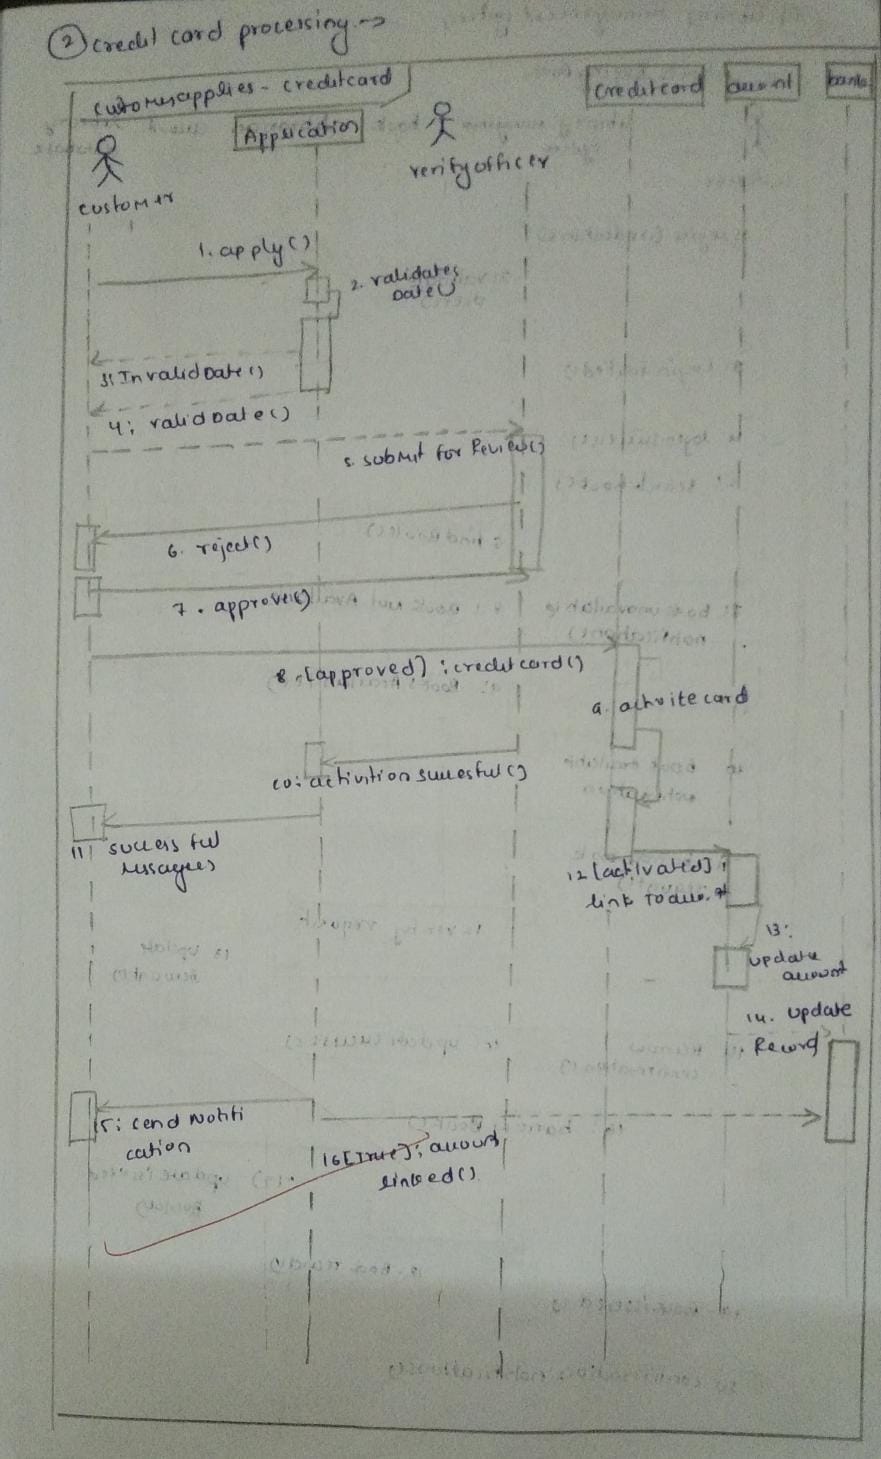 ② credit card processing →
customerapplies - creditcard
Application
verifyofficer
creditcard
account
bank
customer
1. apply()
2. validates
Date()
3: Invalid Date()
4: valid Date()
5. submit for Review()
6. reject()
7. approves()
8. [approved] : creditcard()
9. activite card
10: activition sucesful()
11: success ful
messagees
12 [activated] :
link to
13:
update
account
14. update
Record
15: send Notifi
cation
16 [True] : account
linked()